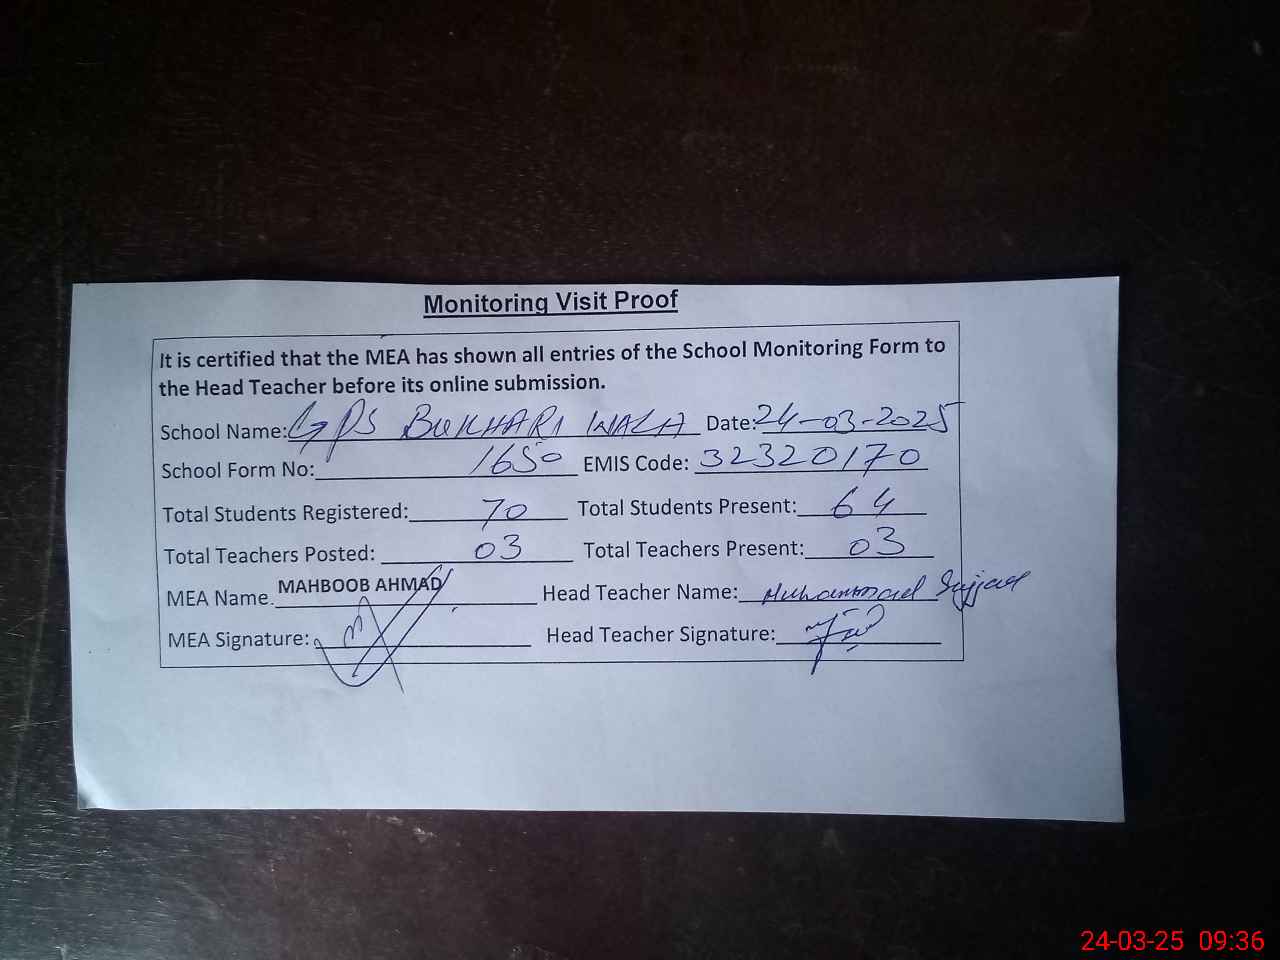 Monitoring Visit Proof
It is certified that the MEA has shown all entries of the School Monitoring Form to
the Head Teacher before its online submission.
School Name: GPS BUKHARI WALA Date: 24-03-2025
School Form No: 1650 EMIS Code: 32320170
Total Students Registered: 70 Total Students Present: 64
Total Teachers Posted: 03 Total Teachers Present: 03
MEA Name. MAHBOOB AHMAD Head Teacher Name: Muhammad
MEA Signature: Head Teacher Signature:
24-03-25 09:36